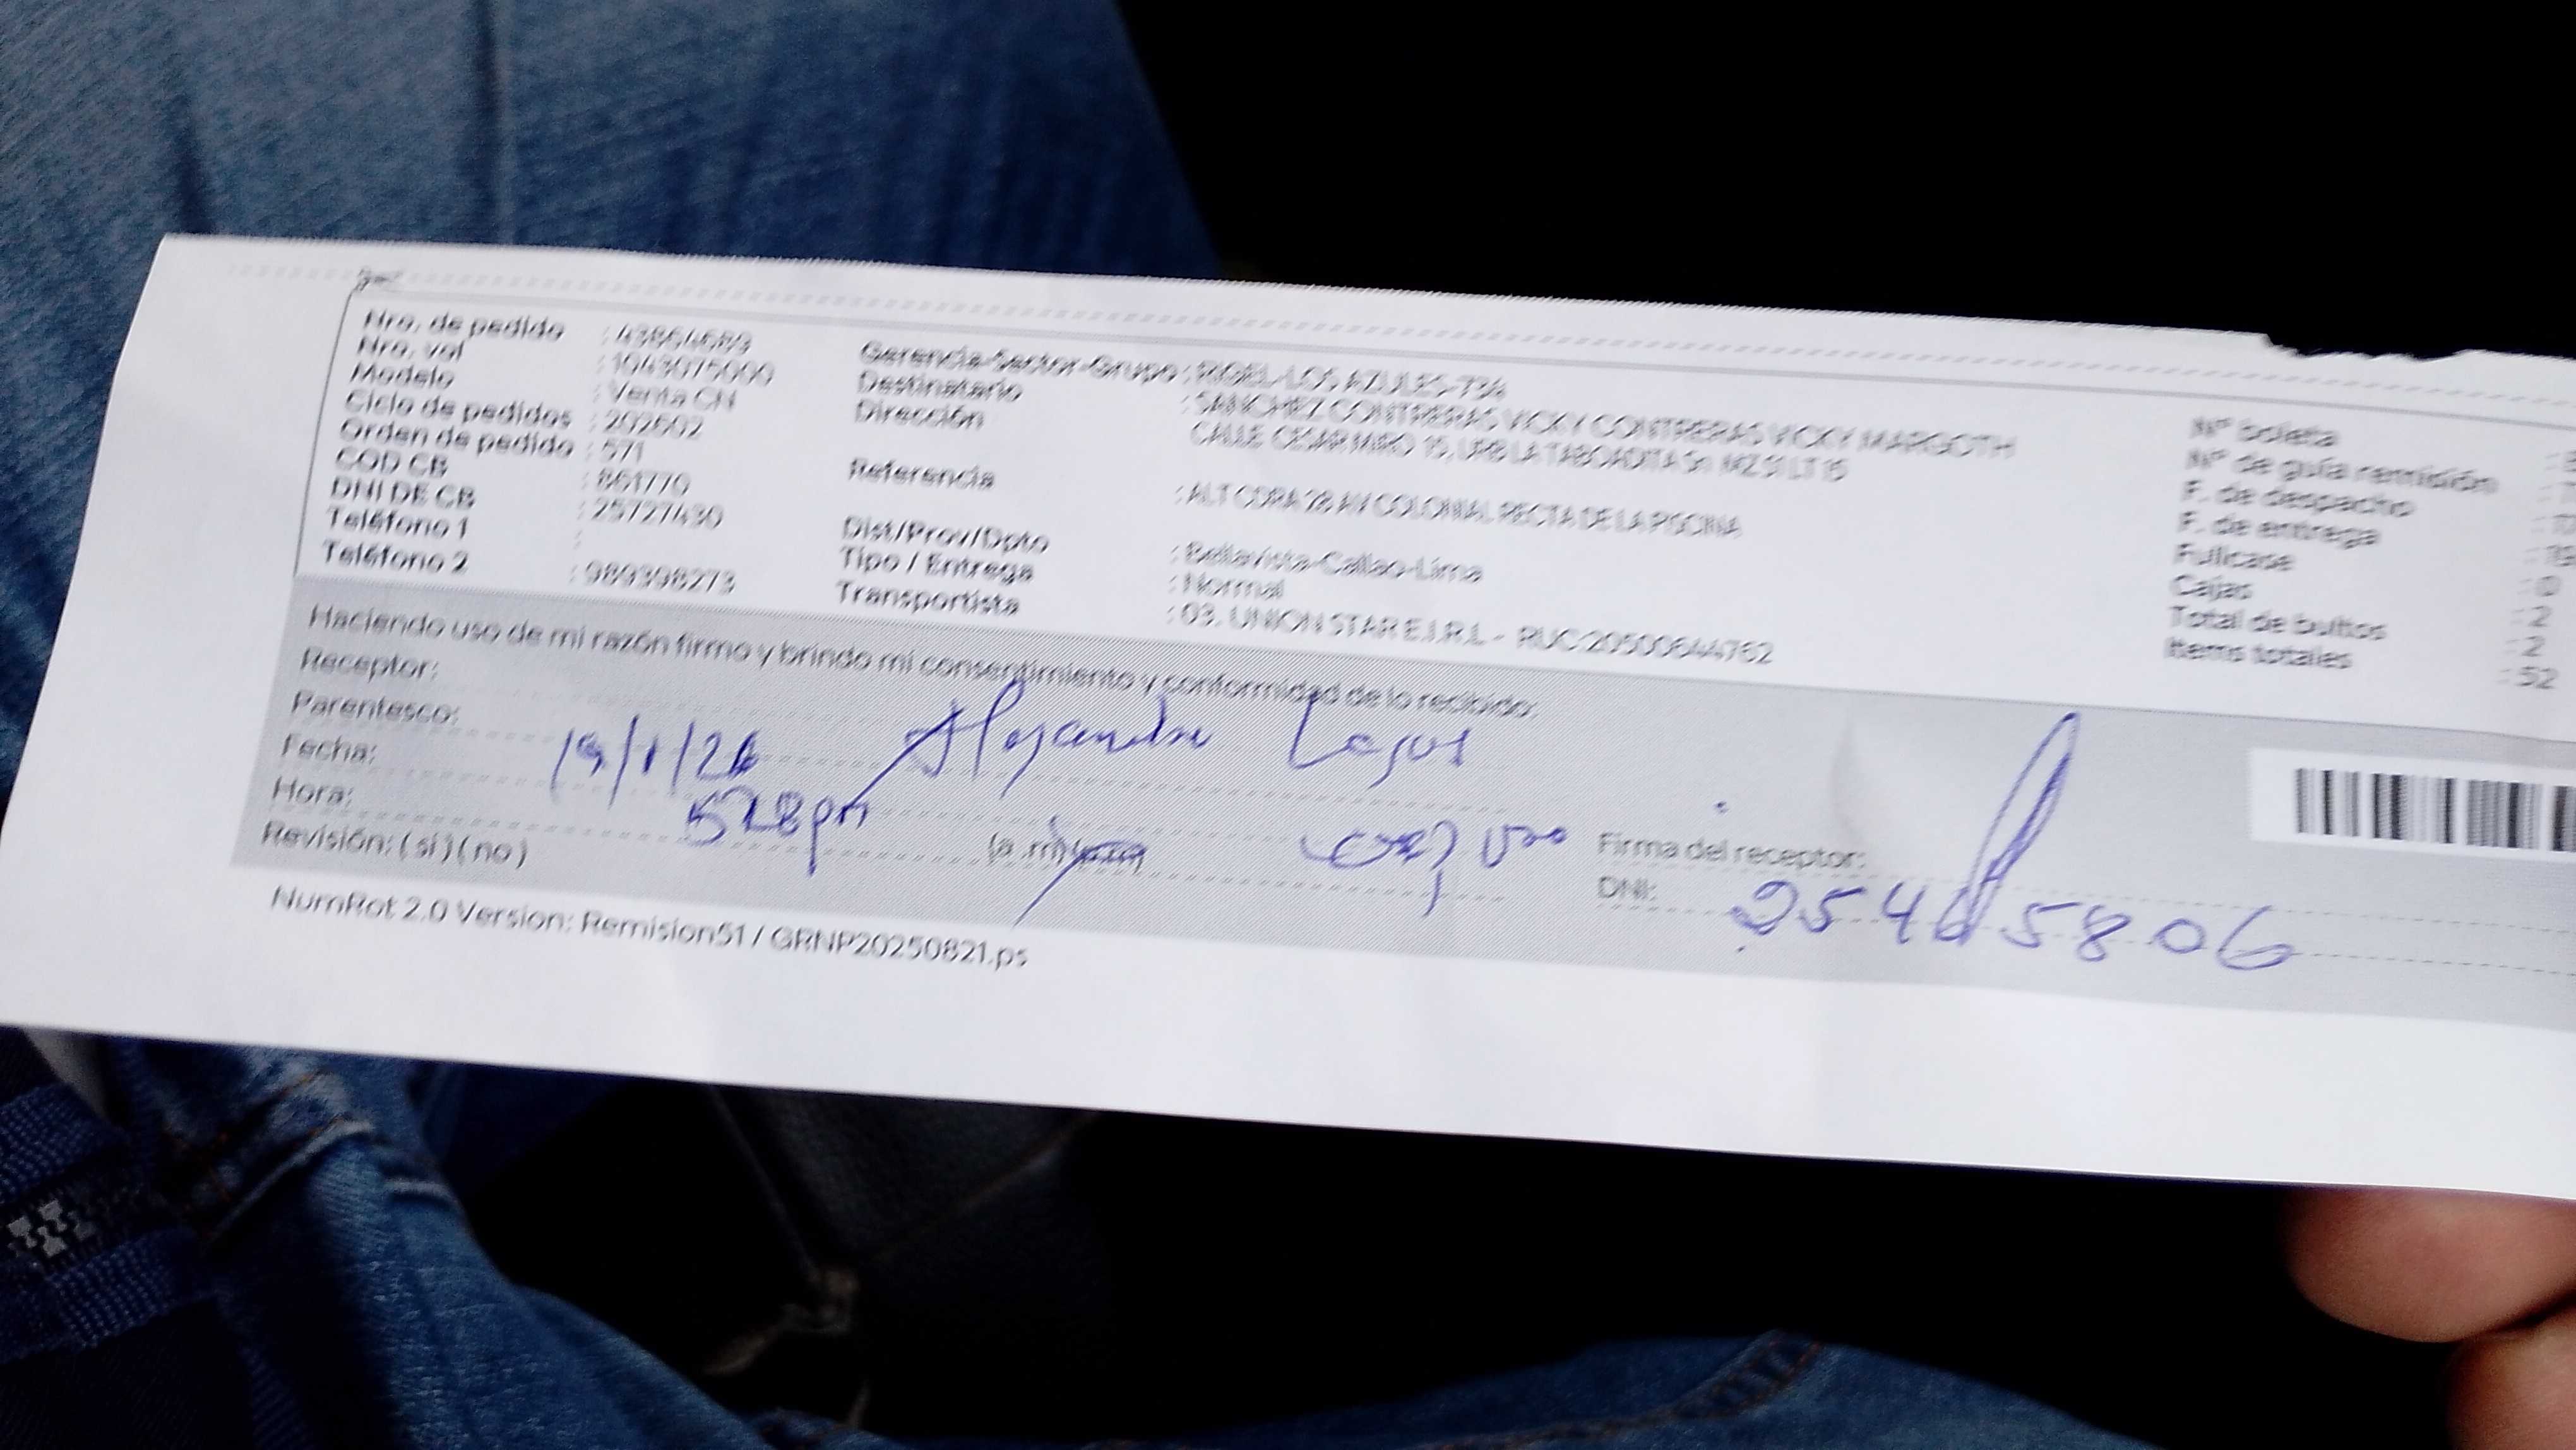 Nro. de pedido : 43864689
Nro. vol : 1043075000
Modelo : Venta CN
Ciclo de pedidos : 202602
Orden de pedido : 571
COD CB : 861770
DNI DE CB : 25727430
Teléfono 1 :
Teléfono 2 : 989398273
Gerencia-Sector-Grupo :
Destinatario : SANCHEZ CONTRERAS VICKY CONTRERAS VICKY MARGOTH
Dirección CALLE CESAR MIRO 15, URB LA TABOADITA Sn MZ S1 LT 15
Referencia : ALT CDRA 28 AV COLONIAL RECTA DE LA PISCINA
Dist/Prov/Dpto : Bellavista-Callao-Lima
Tipo / Entrega : Normal
Transportista : 03. UNION STAR E.I.R.L - RUC:20500644762
Nº boleta :
Nº de guía remisión :
F. de despacho :
F. de entrega : 19
Fullcase : 0
Cajas : 2
Total de bultos : 2
Items totales : 52
Haciendo uso de mi razón firmo y brindo mi consentimiento y conformidad de lo recibido:
Receptor: Alejandro Lagos
Parentesco:
Fecha: 19/1/26
Hora: 528pm (a .m) (p.m)
Revisión: ( si ) ( no )
Firma del receptor:
DNI: 25465806
NumRot 2.0 Version: Remision51 / GRNP20250821.ps